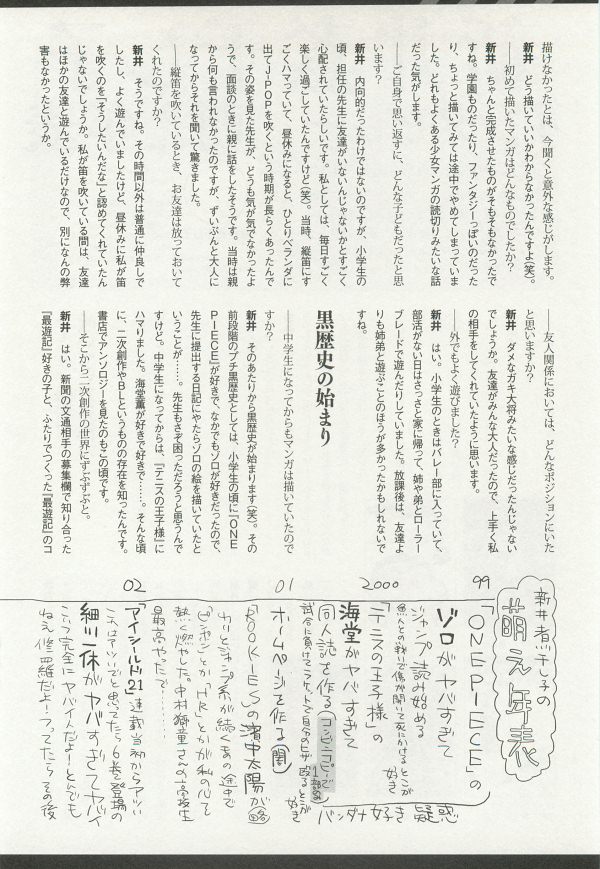 描けなかったとは、今聞くと意外な感じがします。
新井　どう描いていいかわからなかったんですよ(笑)。
――初めて描いたマンガはどんなものでしたか？
新井　ちゃんと完成させたものがそもそもなかったで
すね。学園ものだったり、ファンタジーっぽいのだった
り、ちょっと描いてみては途中でやめてしまっていま
した。どれもよくある少女マンガの読切りみたいな話
だった気がします。
――ご自身で思い返すに、どんな子どもだったと思
います？
新井　内向的だったわけではないのですが、小学生の
頃、担任の先生に友達がいないんじゃないかとすごく
心配されていたらしいです。私としては、毎日すごく
楽しく過ごしていたんですけど(笑)。当時、縦笛にす
ごくハマっていて、昼休みになると、ひとりベランダに
出てJ-POPを吹くという時期が長らくあったんで
す。その姿を見た先生が、どうも気が気でなかったよ
うで、面談のときに親に話をしたそうです。当時は親
から何も言われなかったのですが、ずいぶんと大人に
なってからそれを聞いて驚きました。
――縦笛を吹いているとき、お友達は放っておいて
くれたのですか？
新井　そうですね。その時間以外は普通に仲良しで
したし、よく遊んでいましたけど、昼休みに私が笛
を吹くのを「そうしたいんだな」と認めてくれていたん
じゃないでしょうか。私が笛を吹いている間は、友達
はほかの友達と遊んでいるだけなので、別になんの弊
害もなかったというか。
――友人関係においては、どんなポジションにいた
と思いますか？
新井　ダメなガキ大将みたいな感じだったんじゃない
でしょうか。友達がみんな大人だったので、上手く私
の相手をしてくれていたように思います。
――外でもよく遊びました？
新井　はい。小学生のときはバレー部に入っていて、
部活がない日はさっさと家に帰って、姉や弟とローラー
ブレードで遊んだりしていました。放課後は、友達よ
りも姉弟と遊ぶことのほうが多かったかもしれないで
すね。
黒歴史の始まり
――中学生になってからもマンガは描いていたので
すか？
新井　そのあたりから黒歴史が始まります(笑)。その
前段階のプチ黒歴史としては、小学生の頃に『ONE
PIECE』が好きで、なかでもゾロが好きだったので、
先生に提出する日記にやたらゾロの絵を描いていたと
いうことが……。先生もさぞ困っただろうと思うんで
すけど。中学生になってからは、『テニスの王子様』に
ハマりました。海堂薫が好きで好きで……。そんな頃
に、二次創作やBLというものの存在を知ったんです。
書店でアンソロジーを見たのもこの頃です。
――そこから二次創作の世界にずぶずぶと。
新井　はい。新聞の文通相手の募集欄で知り合った
『最遊記』好きの子と、ふたりでつくった『最遊記』のコ
新井煮干し子の
萌え年表
99
「ONE PIECE」の
ゾロがヤバすぎて
ジャンプ読み始める
魚人との戦いで傷が開いて死にかけるとこが
好き
2000
「テニスの王子様」の
海堂がヤバすぎて
同人誌を作る(コンビニコピーで
1部60
試合に負けてラケットで自分のヒザ殴るとこが
好き
バンダナ好き疑惑
01
ホームページを作る(閉)
「ROOKIES」の濱中太陽が(略)
わりとジャンプ系が続くあの途中で
ピンポンとか「HR」とかが私の心を
熱く燃やした。中村獅童さんの高校生
最高やった…
02
「アイシールド21」連載当初からアツい
これはアツいでと思ってたら6巻で登場の
細川一休がヤバすぎてヤバイ
こいつ完全にヤバイんだよ！とんでも
ねえ修羅だよ！つってたらその後